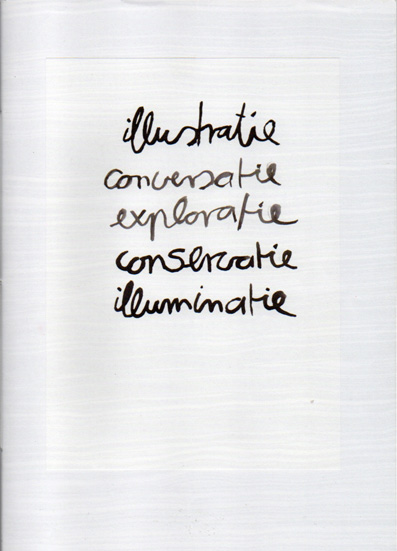 illustratie
conversatie
exploratie
conservatie
illuminatie